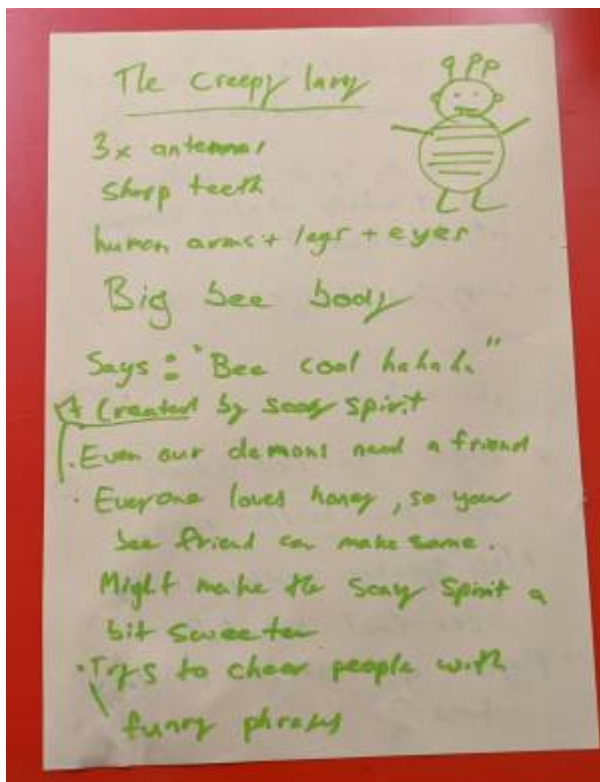 The creepy lary
3x antennas
sharp teeth
human arms + legs + eyes
Big bee body
Says : "Bee cool hahaha"
Created by scary spirit
. Even our demons need a friend
. Everyone loves honey, so your
bee friend can make some.
Might make the scary spirit a
bit sweeter
. Trys to cheer people with
funny phrases